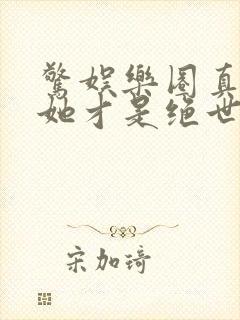 驚娛樂圈真
她才是绝世
宋加琦